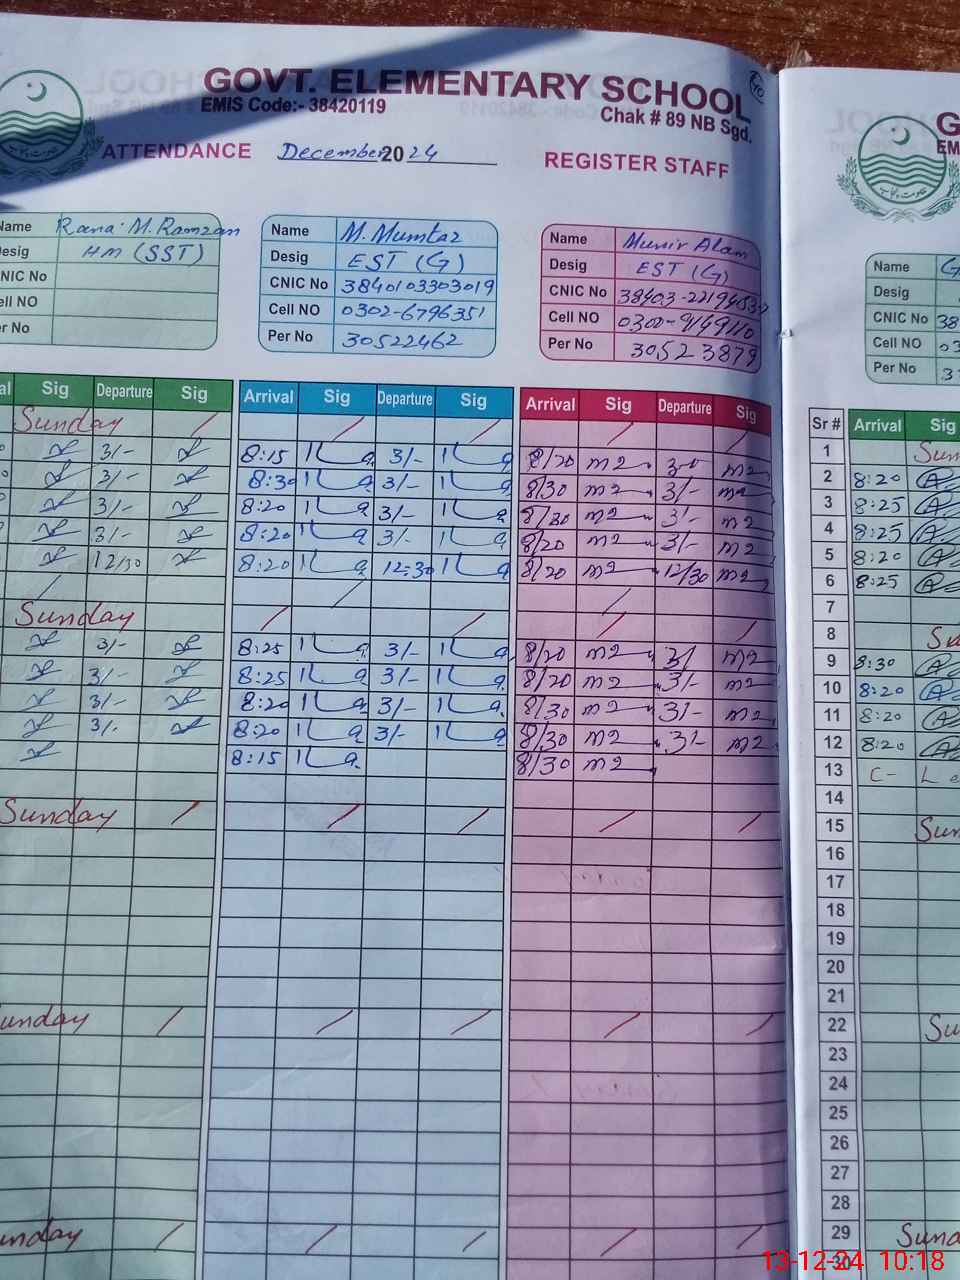 GOVT. ELEMENTARY SCHOOL
EMIS Code:- 38420119
Chak # 89 NB Sgd.
ATTENDANCE December 2024 REGISTER STAFF
Name Rana M. Ramzan
Desig HM (SST)
CNIC No
Cell NO
Per No
Name M. Mumtaz
Desig EST (G)
CNIC No 3840103303019
Cell NO 0302-6796351
Per No 30522462
Name Munir Alam
Desig EST (G)
CNIC No
Cell NO
Per No 30523879
Name
Desig
CNIC No 38
Cell NO 03
Per No 3
Sig Departure Sig Arrival Sig Departure Sig Arrival Sig Departure Sig Sr # Arrival Sig
Sunday 1 Sun
3/- 8:15 3/- 8/20 2 8:20
3/- 8:30 3/- 8/30 3/- 3 8:25
3/- 8:20 3/- 3/- 4 8:25
3/- 8:20 3/- 8/20 3/- 5 8:20
12/30 8:20 12:30 8/20 12/30 6 8:25
7
Sunday 8
3/- 8:25 3/- 8/20 3/- 9 8:30
3/- 8:25 3/- 8/20 3/- 10 8:20
3/- 8:20 3/- 8/30 3/- 11 8:20
3/- 8:20 3/- 8/30 3/- 12 8:20
8:15 8/30 13 C- Le
14
Sunday 15 Sun
16
17
18
19
20
21
unday 22 Su
23
24
25
26
27
28
unday 29 Sund
30
13-12-24 10:18